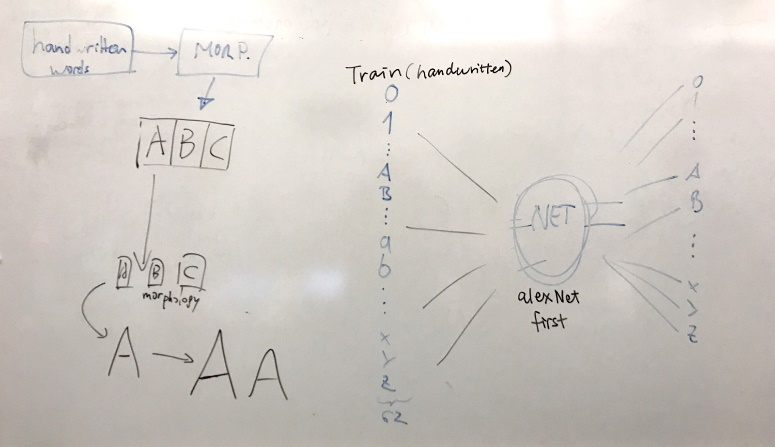 handwritten
words
MORP.
A B C
A B C
morphology
A A A
Train (handwritten)
0
1
⋮
A
B
⋮
a
b
⋮
x
y
z
62
NET
alexNet
first
0
1
⋮
A
B
⋮
x
y
z